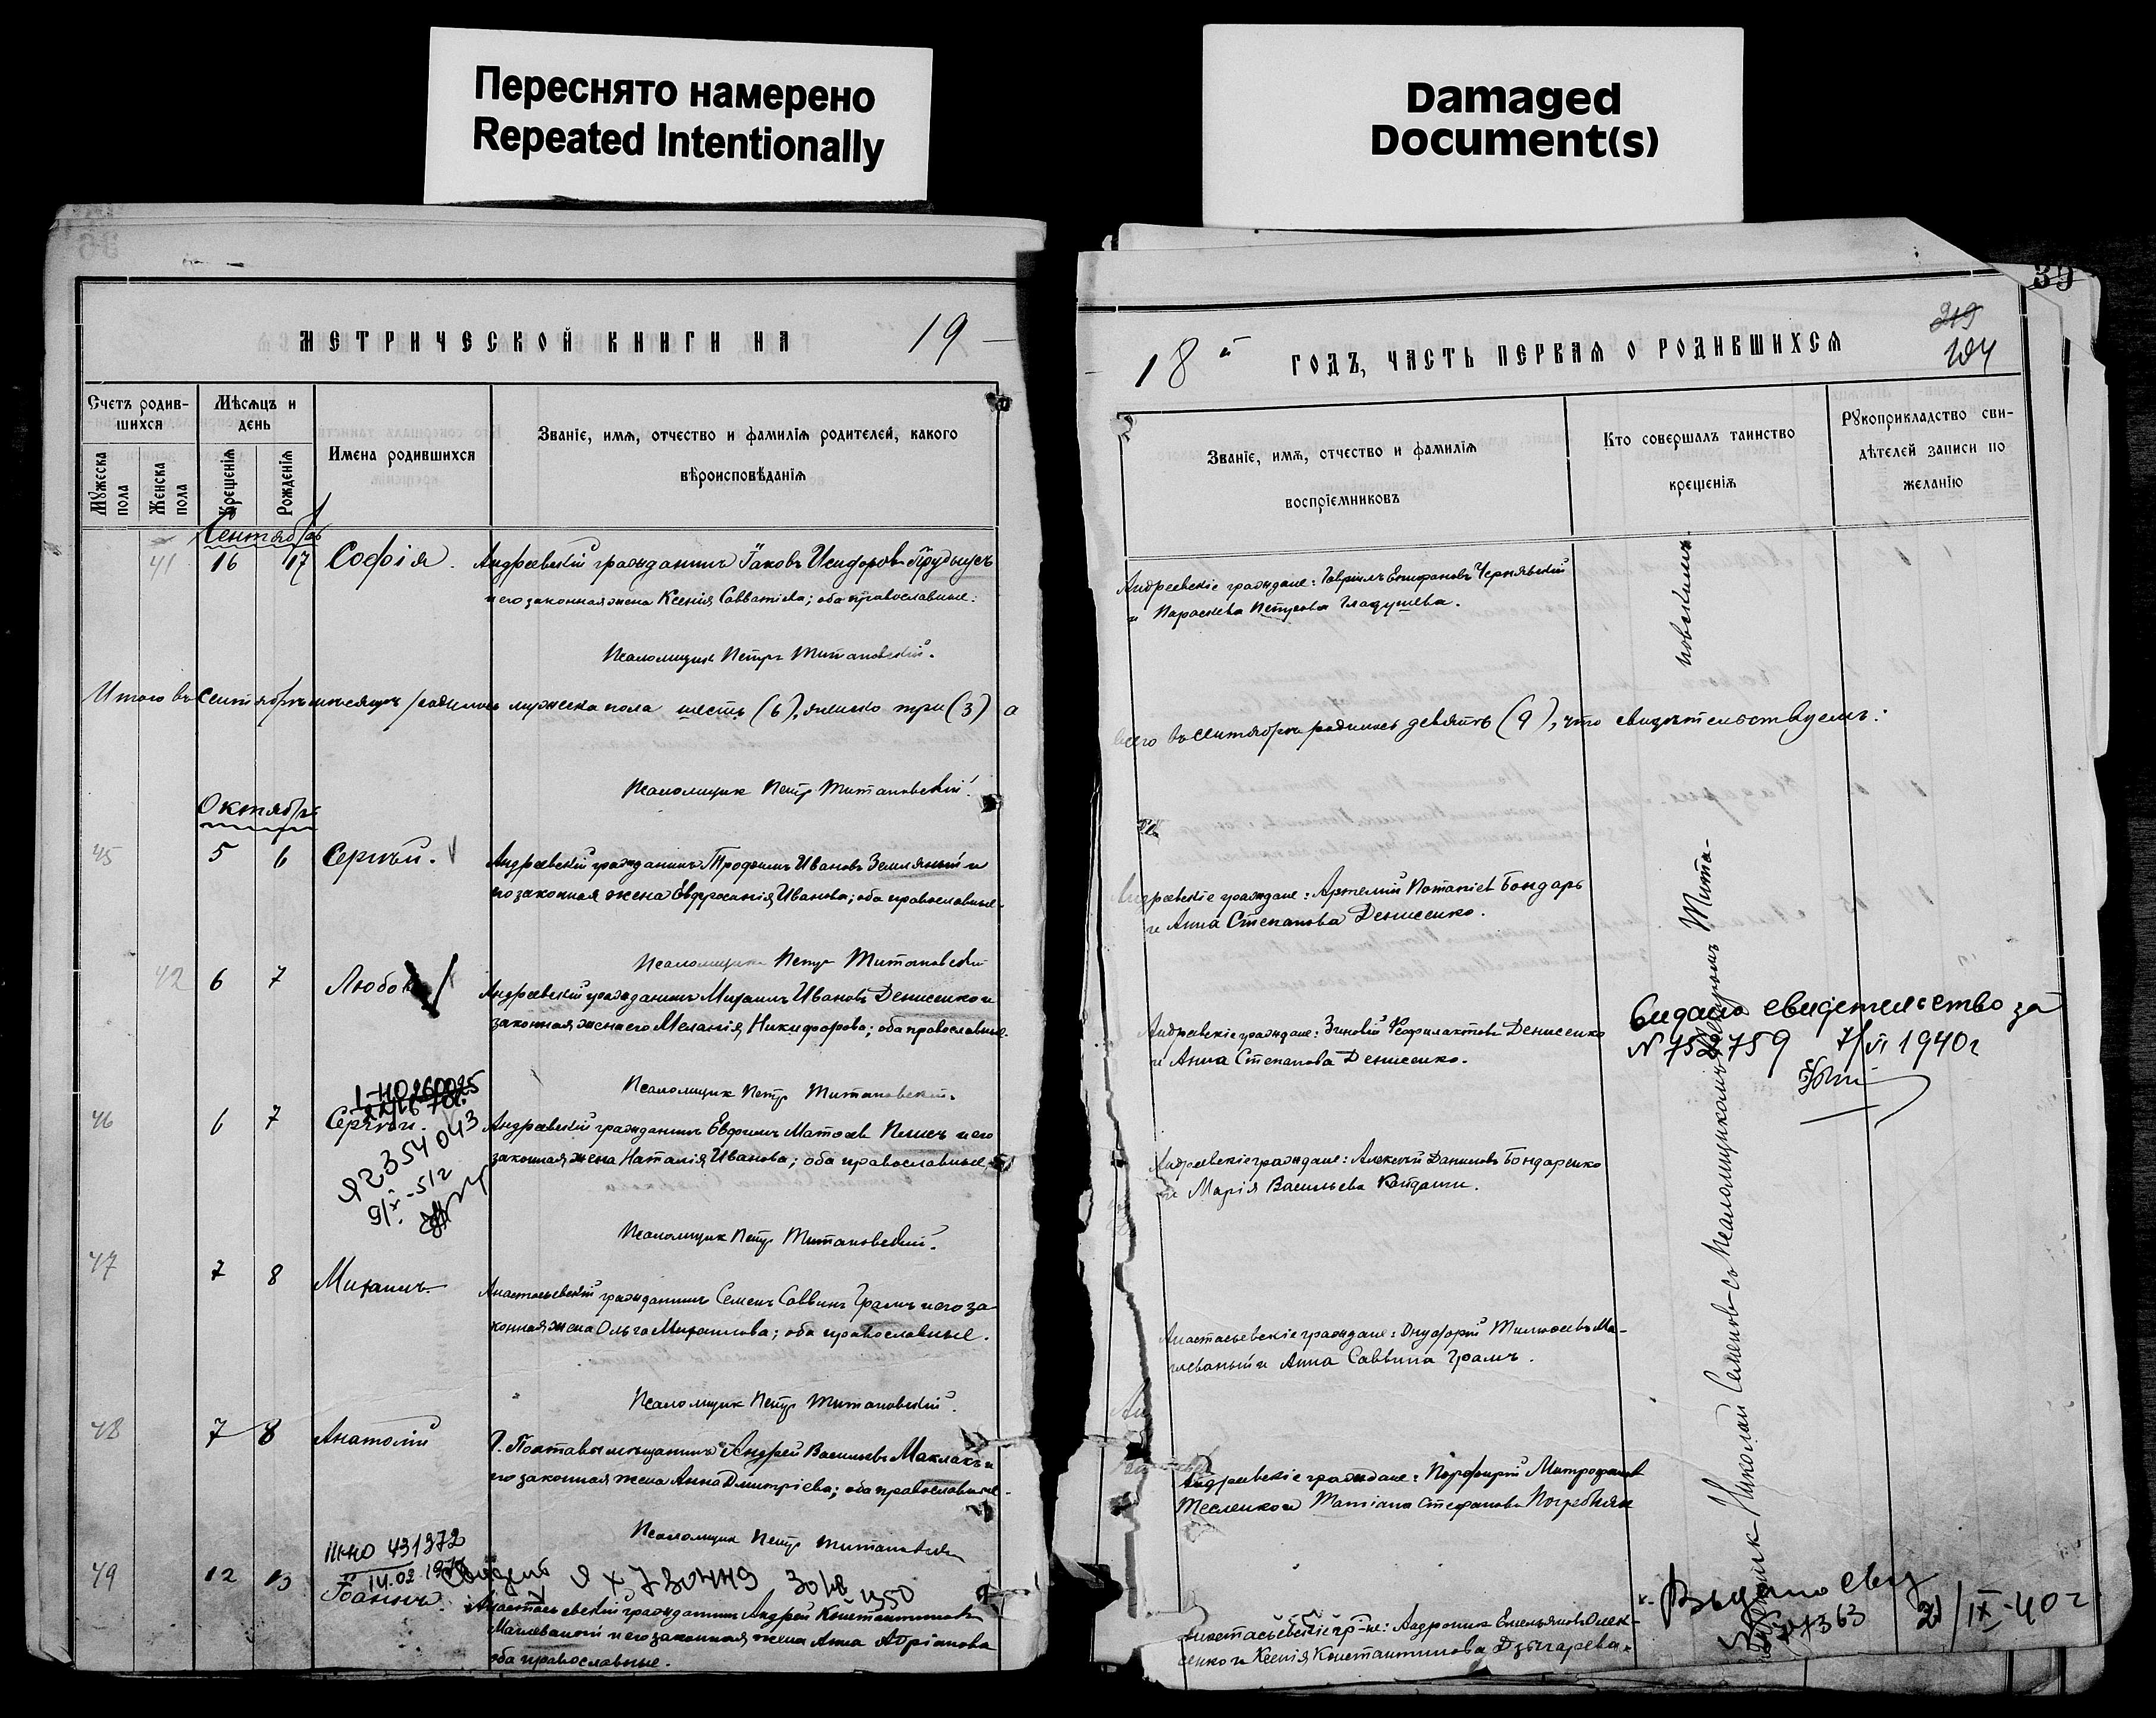 Переснято намерено
Repeated Intentionally
Damaged
Document(s)
39
МЕТРИЧЕСКОЙ КНИГИ НА 19
18й ГОДЪ, ЧАСТЬ ПЕРВАЯ О РОДИВШИХСЯ
219
Счетъ родив-
шихся
Мужеска
пола
Женска
пола
Мѣсяцъ и
день
Крещенія
Рожденія
Имена родившихся
Званіе, имя, отчество и фамилія родителей, какого
вѣроисповѣданія
Званіе, имя, отчество и фамилія
воспріемниковъ
Кто совершалъ таинство
крещенія
Рукоприкладство сви-
дѣтелей записи по
желанію
Сентябрь
41 16 17 Софія. Андреевскій гражданинъ Іаковъ Исидоровъ
и его законная жена Ксенія Савватіева; оба православные.
Псаломщикъ Петръ Титановскій.
Андреевскіе граждане: Гавріилъ Епифановъ Чернявскій
и Параскева Петрова Гладушева.
Итого въ сентябрѣ мѣсяцѣ родилось мужеска пола шесть (6), женско три (3) а
всего въ сентябрѣ родилось девять (9), что свидѣтельствуемъ:
Псаломщикъ Петръ Титановскій.
Октябрь
45 5 6 Сергѣй. Андреевскій гражданинъ Трофимъ Ивановъ Земляный и
его законная жена Евфросинія Иванова; оба православные.
Псаломщикъ Петръ Титановскій
Андреевскіе граждане: Артемій Бондарь
и Анна Степанова Денисенко.
42 6 7 Любовь Андреевскій гражданинъ Михаилъ Ивановъ Денисенко и
законная жена его Меланія Никифорова; оба православные.
Псаломщикъ Петръ Титановскій.
Андреевскіе граждане: Зиновій Феофилактовъ Денисенко
и Анна Степанова Денисенко.
Видано свидетельство за
N 7524759 7/VI 1940г
I-НО260025
46 6 7 Сергѣй. Андреевскій гражданинъ Евфимъ и его
законная жена Наталія Иванова; оба православные.
Я2354043
Псаломщикъ Петръ Титановскій.
Андреевскіе граждане: Алексѣй Даниловъ Бондаренко
и Марія Васильева
47 7 8 Михаилъ. Анастасьевскій гражданинъ Семенъ Саввинъ Грамъ и его за-
конная жена Ольга Михаилова; оба православные.
Псаломщикъ Петръ Титановскій.
Анастасьевскіе граждане: Онуфрій Тимофеевъ Ма-
леваный и Анна Саввина Грамъ.
48 7 8 Анатолій Г. Полтавы мѣщанинъ Андрей Васильевъ Маклакъ и
его законная жена Анна Дмитріева; оба православные.
Псаломщикъ Петръ Титановскій
Андреевскіе граждане: Порфирій Митрофановъ
Тесленко и Татіана Стефанова Погребняк
III-НО 431372
14.02 197
49 12 13 Іоаннъ. Анастасьевскій гражданинъ Андрей Константиновъ
Малеваный и его законная жена Анна Адріанова
оба православные.
Анастасьевскіе гр-не: Андроникъ Емельяновъ Олек-
сенко и Ксенія Константинова Дзыгарева.
Выдано свид
21/IX-40г
Николай Семеновъ съ Псаломщикомъ Петромъ Тита-
новскимъ